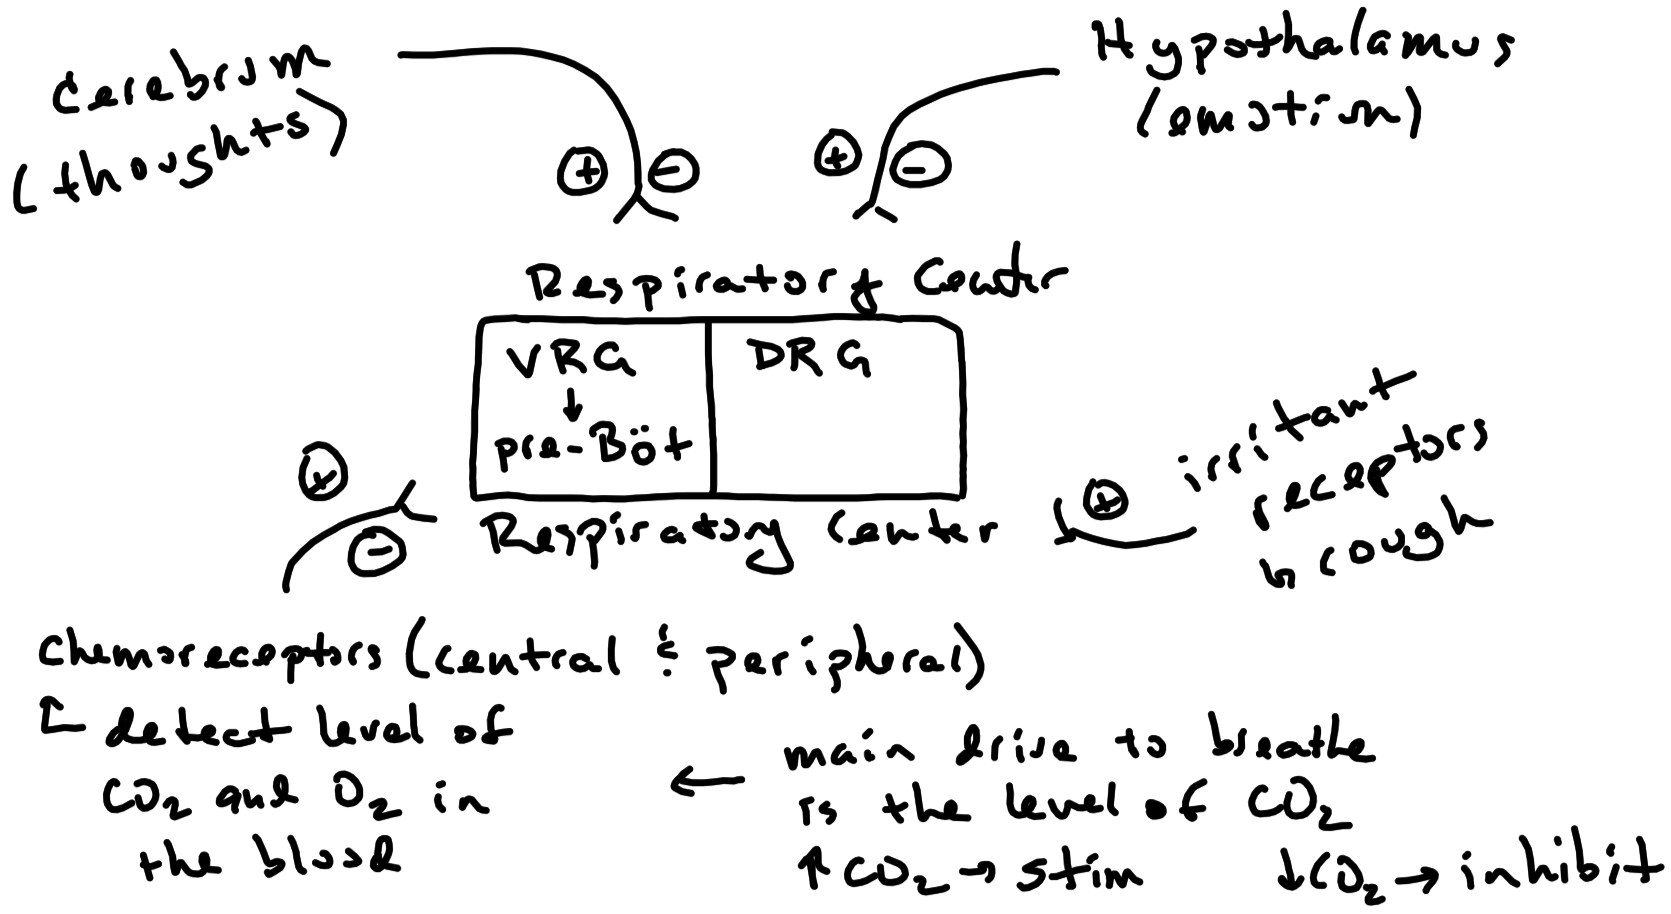 Cerebrum
(thoughts)
Hypothalamus
(emotion)
+ -
+ -
Respiratory Center
VRG
↓
pre-Böt
DRG
Respiratory Center
+
-
+
irritant
receptors
↳ cough
Chemoreceptors (central & peripheral)
detect level of
CO₂ and O₂ in
the blood
← main drive to breathe
is the level of CO₂
↑ CO₂ → stim ↓ CO₂ → inhibit